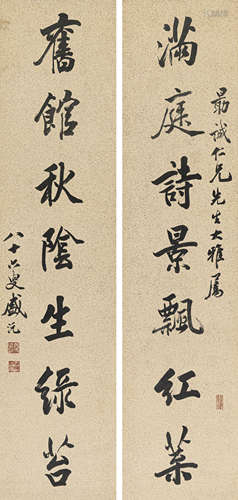 勗誠仁兄先生大雅屬
滿庭詩景飄紅葉
舊館秋陰生綠苔
八十六叟盛沅